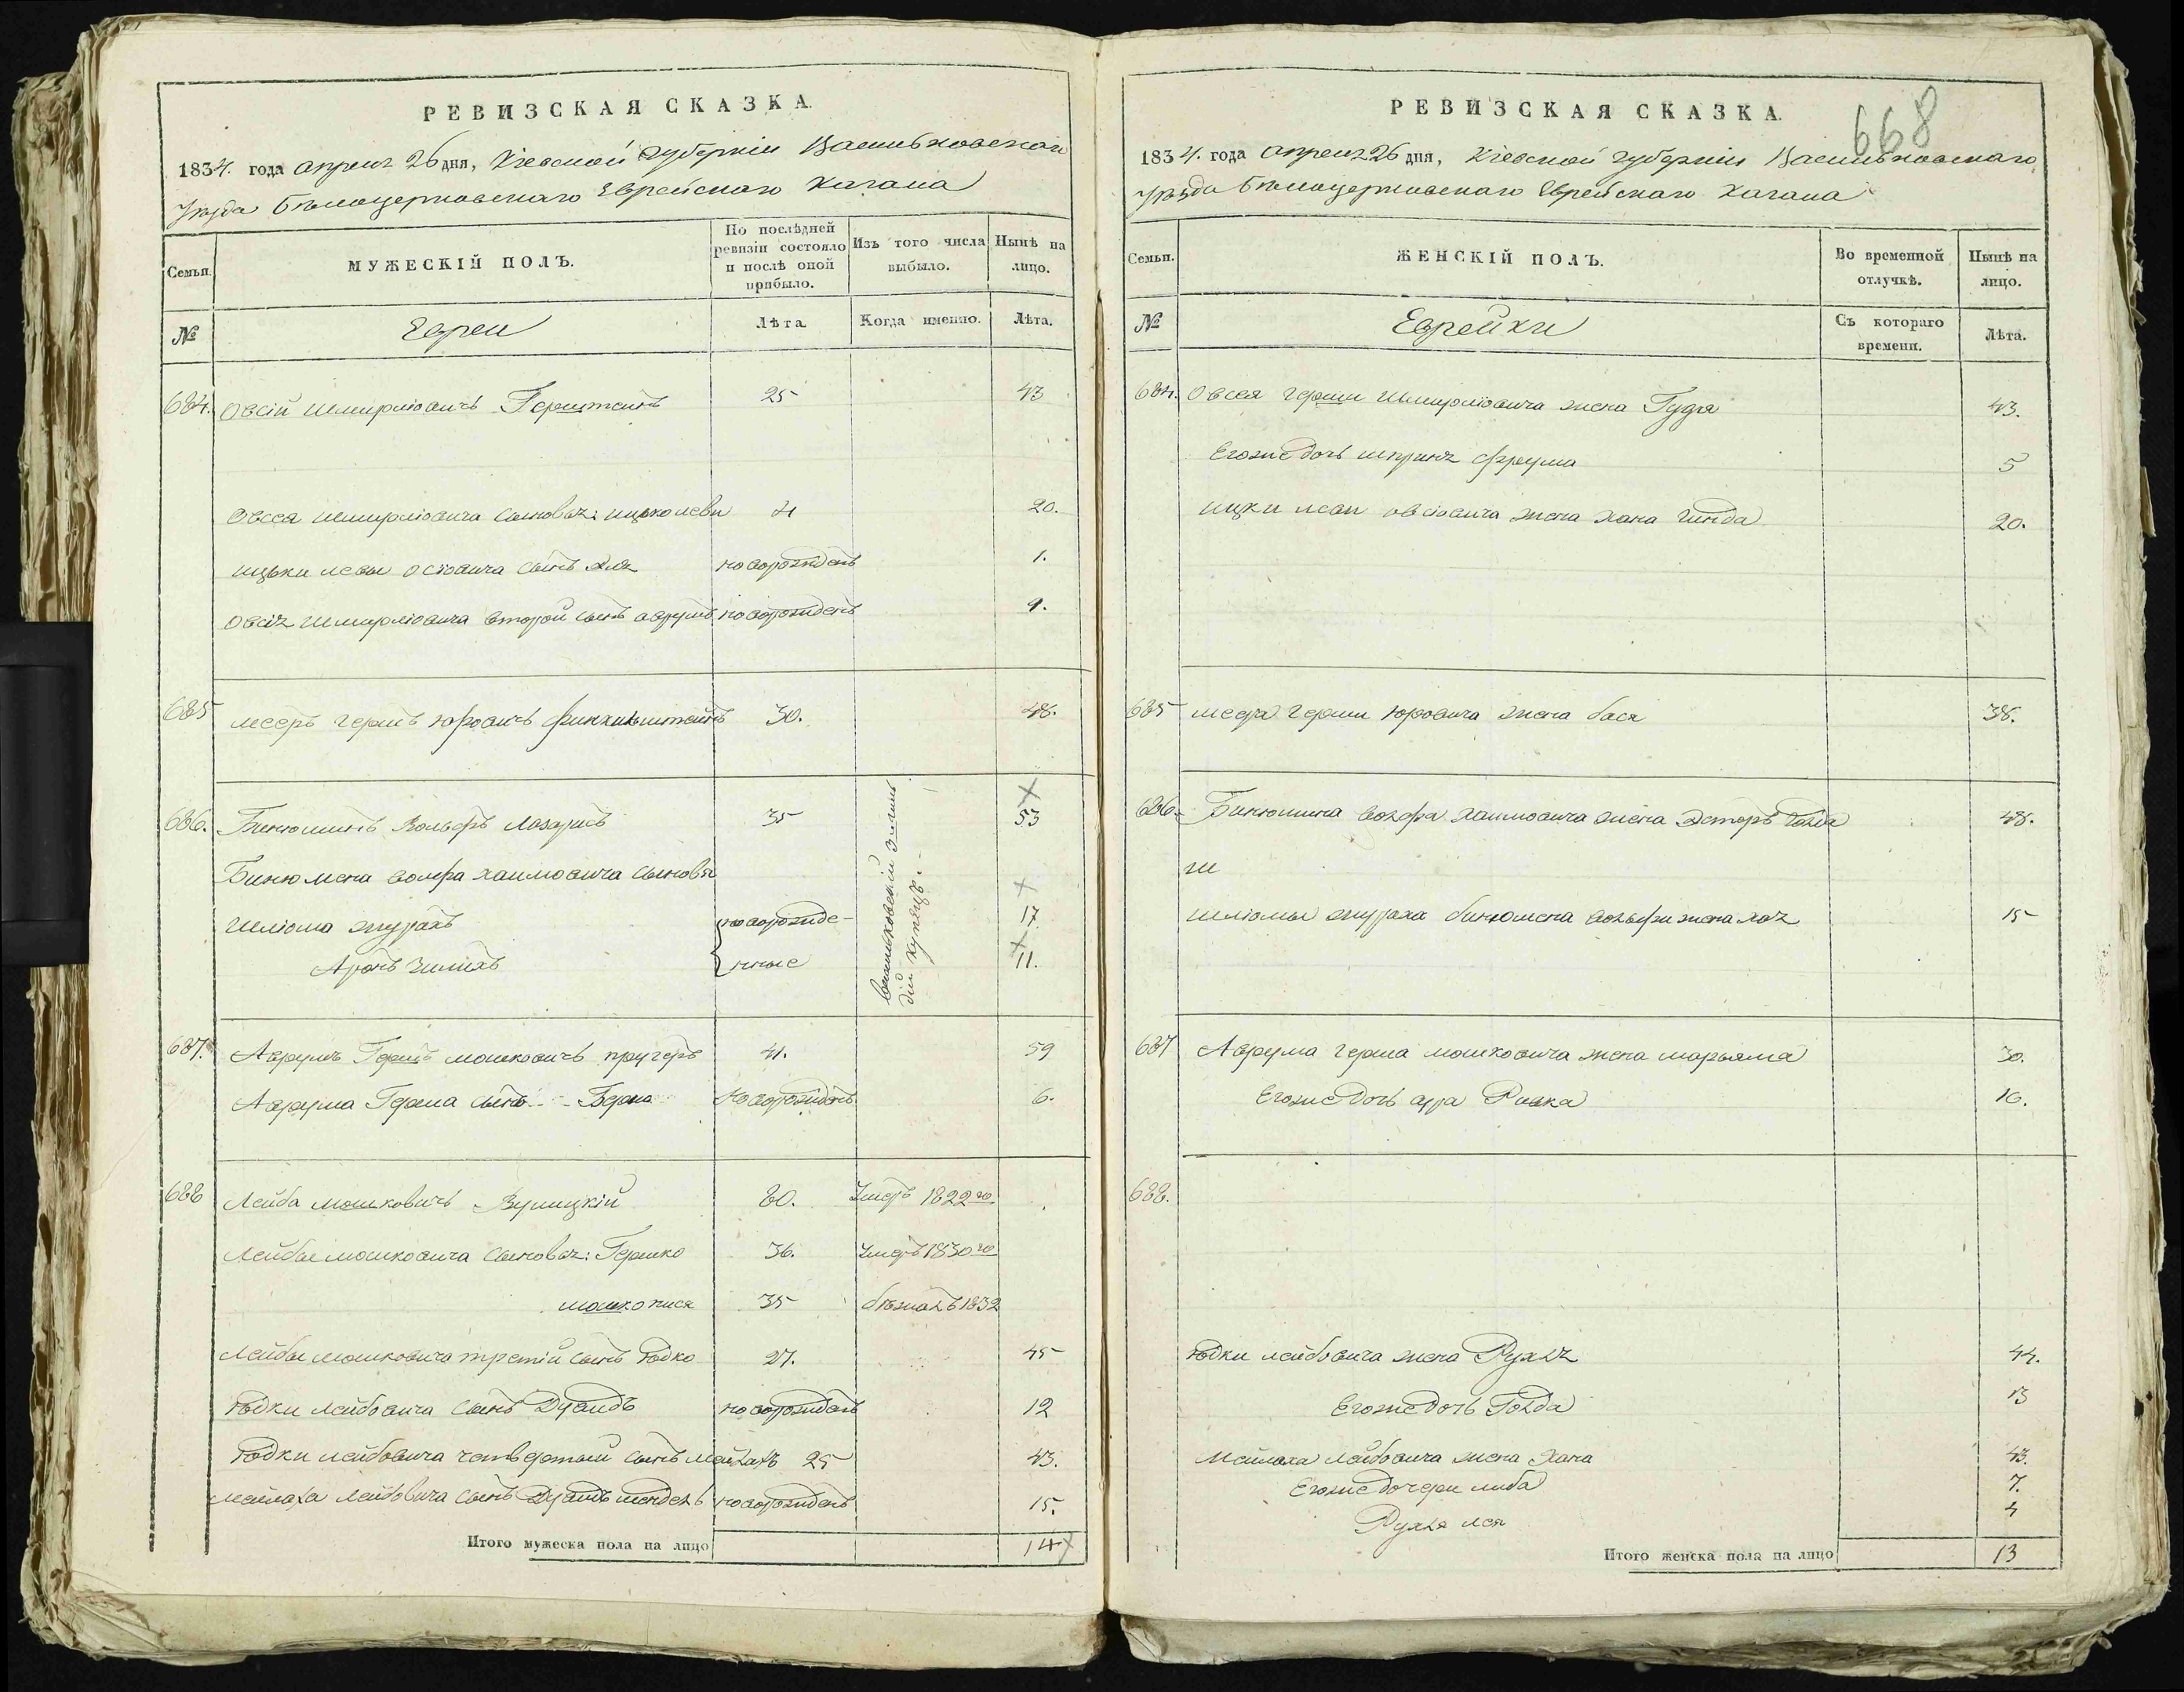 РЕВИЗСКАЯ СКАЗКА.
1834. года апреля 26 дня, Кіевской губерніи Васильковскаго
Уѣзда Бѣлоцерковскаго Еврейскаго Кагала
Семьи.
МУЖЕСКІЙ ПОЛЪ.
По послѣдней ревизіи состояло и послѣ оной прибыло.
Изъ того числа выбыло.
Нынѣ на лицо.
№
Евреи
Лѣта
Когда именно.
Лѣта.
684. Овсій Шмирліовичъ Герштейнъ 25 43
Овсея Шмирліовича сыновья: ицко леви 4 20.
ицьки левы осіовича сынъ новорожденъ 1.
Шмирліовича второй сынъ аврумъ новорожденъ 9.
685 мееръ гершъ юровичъ финкильштейнъ 30. 48.
686. Бинюминъ Вольфъ Лазарисъ 35 53
Бинюмена волфа хаимовича сыновья
Шліома новорожде- 17
Аронъ Зилихъ нные 11.
687. Аврумъ Гершъ мошковичъ 41. 59
Аврума Герша сынъ - Берко Новорожденъ 6.
688 Лейба мошковичъ 80. Умеръ 1822го
Лейбы мошковича сыновья: Гершко 36. Умеръ 1830го
мошко 35 бѣжалъ 1832
Лейбы мошковича третій сынъ Юдко 27. 45
Юдки Лейбовича сынъ Дувидъ новорожденъ 12
Юдки лейбовича четвертый сынъ мейлахъ 25 43.
мейлаха Лейбовича сынъ Дувидъ мендель новорожденъ 15.
Итого мужеска пола на лицо 14
668
РЕВИЗСКАЯ СКАЗКА.
1834. года апреля 26 дня, Кіевской губерніи Васильковскаго
Уѣзда Бѣлоцерковскаго Еврейскаго Кагала
Семьи.
ЖЕНСКІЙ ПОЛЪ.
Во временной отлучкѣ.
Нынѣ на лицо.
№
Еврейки
Съ котораго времени.
Лѣта.
684. Овсея герши Шмирліовича жена Гудя 43.
Егоже дочь шпринца фрума 5
ицки леви овсіовича жена Хана Гинда 20.
685 меера герши юровича жена бася 38.
686. Бинюмина волфа хаимовича жена Эстеръ 48.
Шліомы бинюмена вольфи жена 15
687 Аврума герша мошковича жена марьяма 30.
Егоже дочь Ривка 16.
688.
Юдки лейбовича жена Рухля 44.
Егоже дочь Голда 13
Мейлаха лейбовича жена Хана 43.
Егоже дочери либа 7.
Рухля лея 4
Итого женска пола на лицо 13